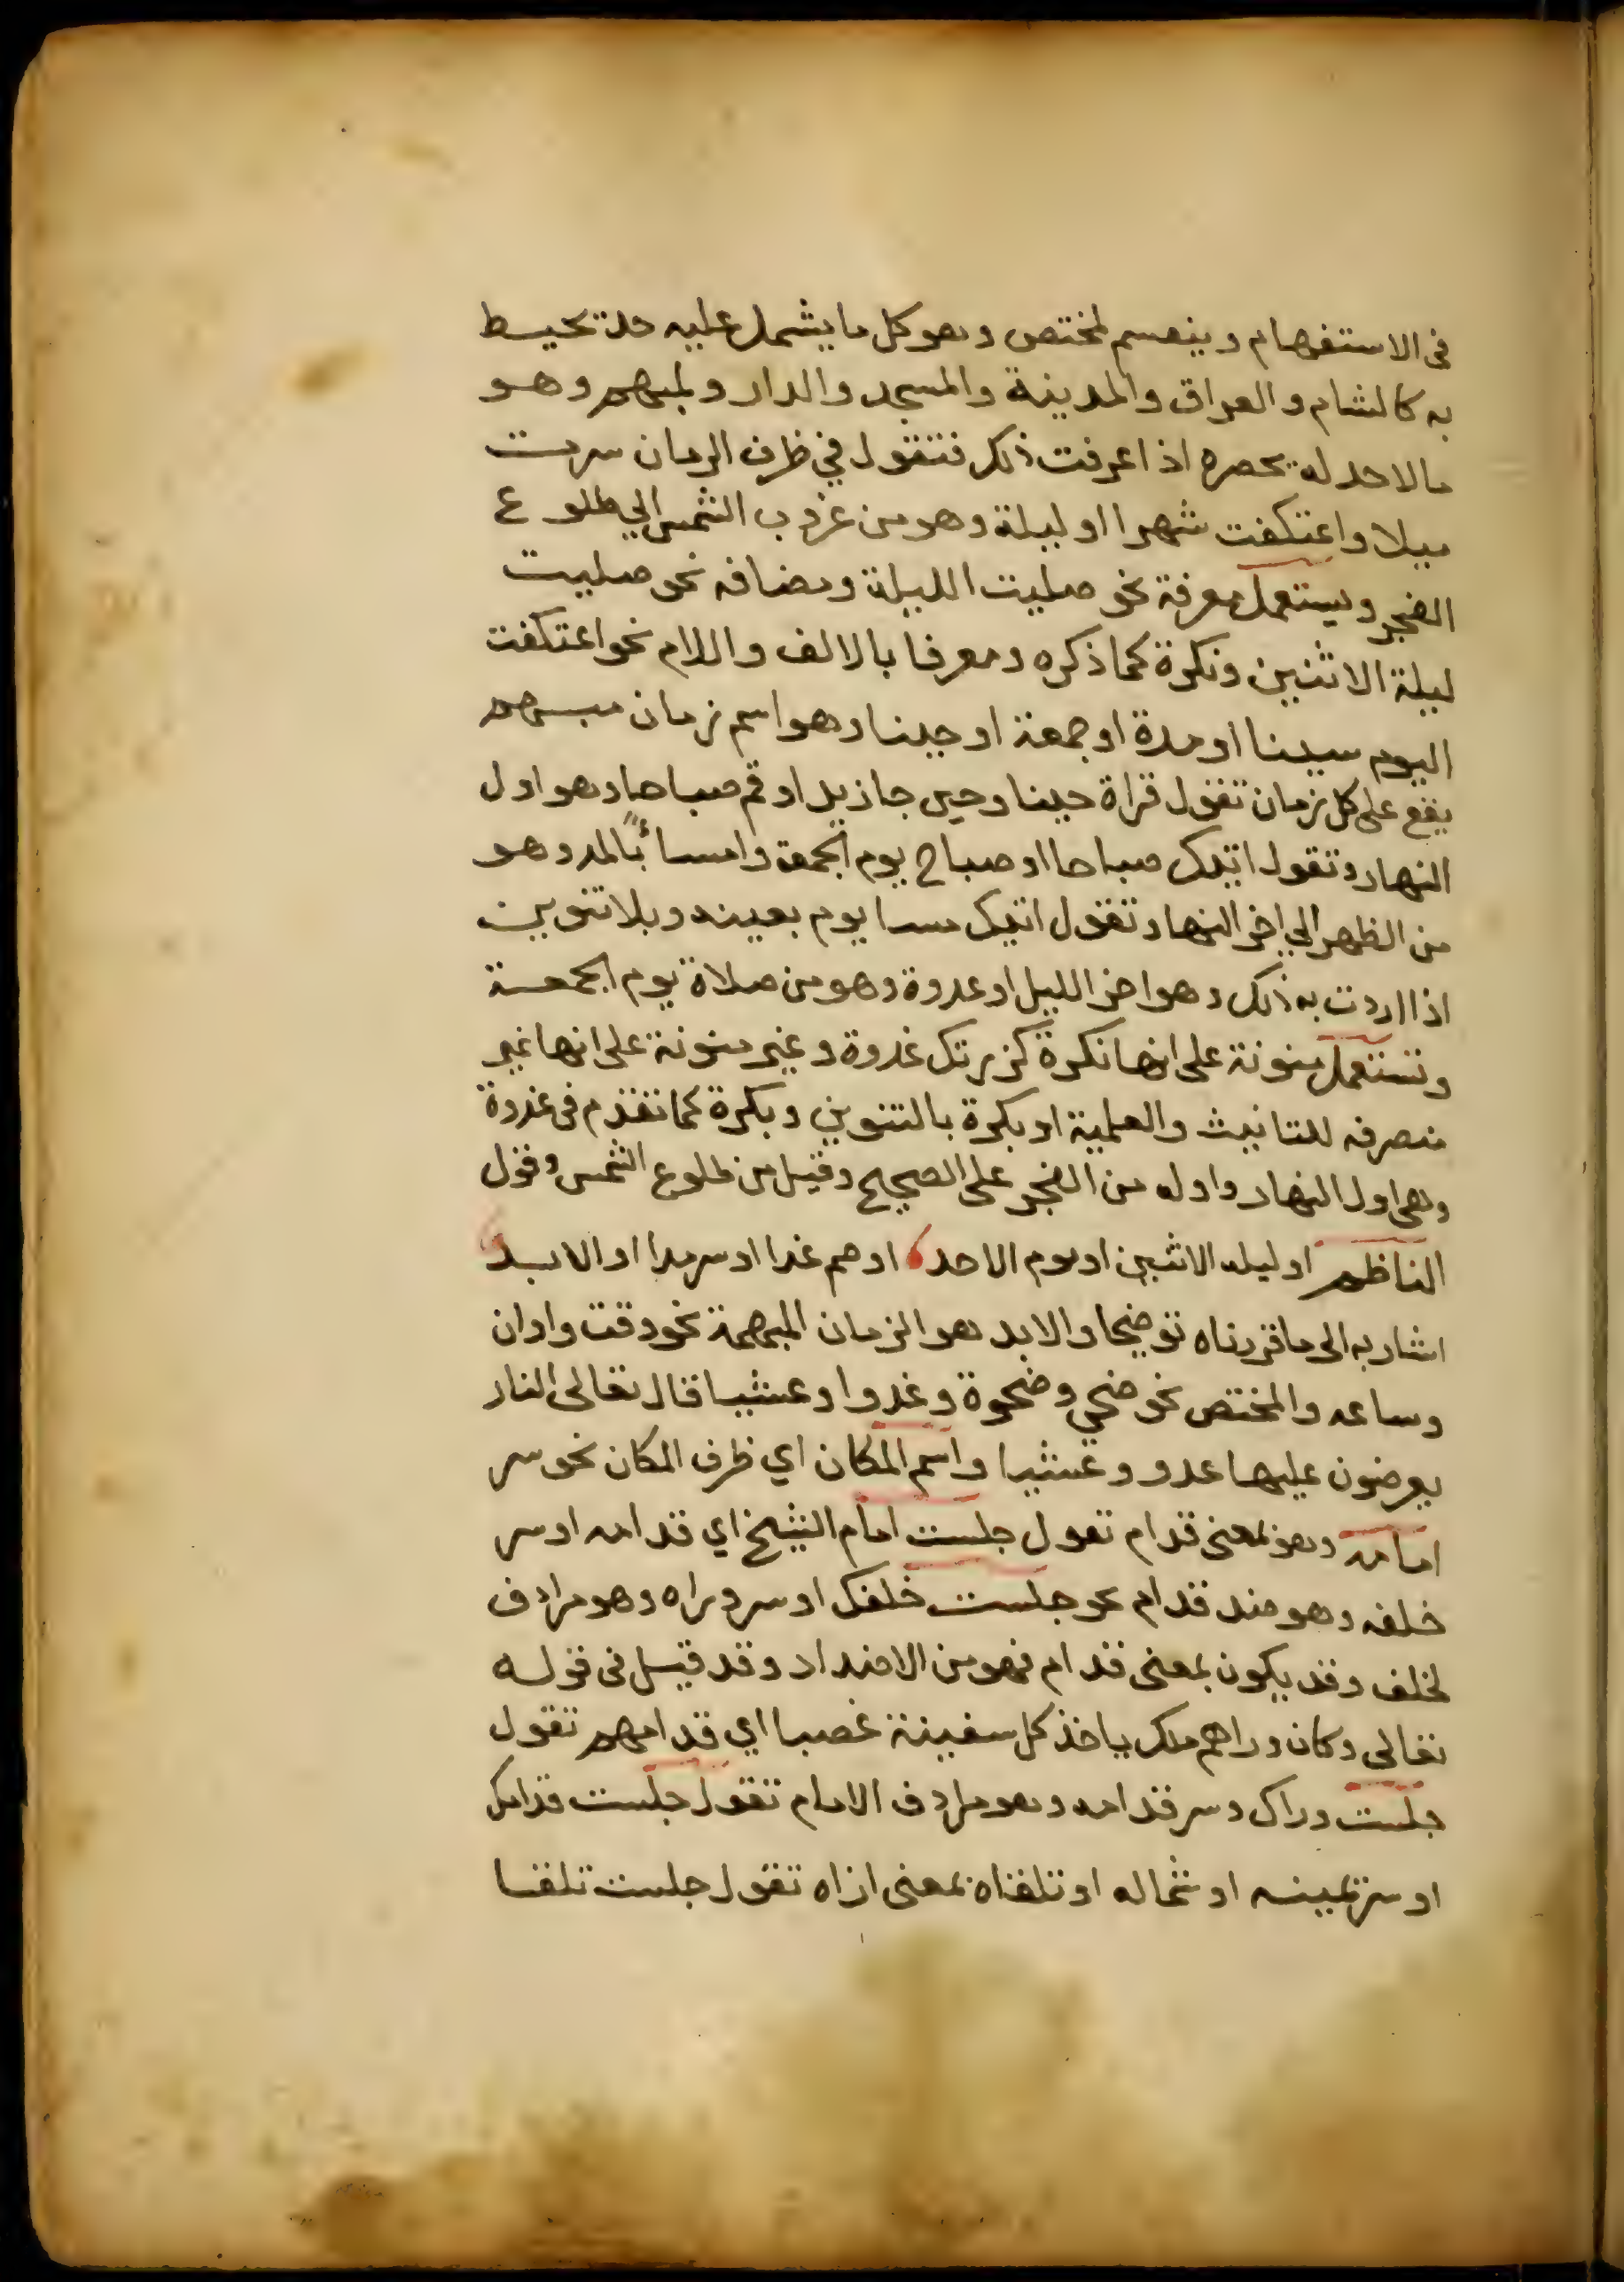 في الاستفهام وينقسم لمختص وهو كل ما يشمل عليه حد تحيط
به كالشام والعراق والمدينة والمسجد والدار ولمبهم وهو
مالا حد له يحصره اذا عرفت ذلك فتقول في ظرف الزمان سرت
ميلا واعتكفت شهرا او ليلة وهو من غروب الشمس الي طلوع
الفجر ويستعمل معرفة نحو صليت الليلة ومضافه نحو صليت
ليلة الاثنين ونكرة كما ذكره ومعرفا بالالف واللام نحو اعتكفت
اليوم سينا او مدة او جمعة او حينا وهو اسم زمان مبهم
يقع على كل زمان تقول قراة حينا وحين جا زيد او قم صباحا وهو اول
النهار وتقول اتيك صباحا او صباح يوم الجمعة وامساءً بالمد وهو
من الظهر الي اخر النهار وتقول اتيك مسا يوم بعينه وبلا تنوين
اذا اردت به ذلك وهو اخر الليل او غدوة وهو من صلاة يوم الجمعة
وتستعمل منونة على انها نكرة كزرتك غدوة وغير منونة على انها غير
منصرفه للتانيث والعلمية او بكرة بالتنوين وبكرة كما تقدم في غدوة
وهي اول النهار واوله من الفجر على الصحيح وقيل من طلوع الشمس وقول
الناظم او ليله الاثنين او يوم الاحد او صم غدا او سرمدا او الابد
اشار به الى ما قررناه توضيحا والابد هو الزمان المبهمة نحو وقت واوان
وساعه والمختص نحو ضحي وضحوة وغدوا وعشيا قال تعالى النار
يعرضون عليها غدو وعشيا واسم المكان اي ظرف المكان نحو سر
امامه وهو بمعنى قدام تقول جلست امام الشيخ اي قدامه او سر
خلفه وهو ضد قدام نحو جلست خلفك او سر وراه وهو مرادف
لخلف وقد يكون بمعنى قدام فهو من الاضداد وقد قيل في قوله
تعالى وكان وراهم ملك ياخذ كل سفينة غصبا اي قدامهم تقول
جلست وراك وسر قدامه وهو مرادف الامام تقول جلست قدامك
او سر يمينه او شماله او تلقاه بمعنى ازاه تقول جلست تلقا